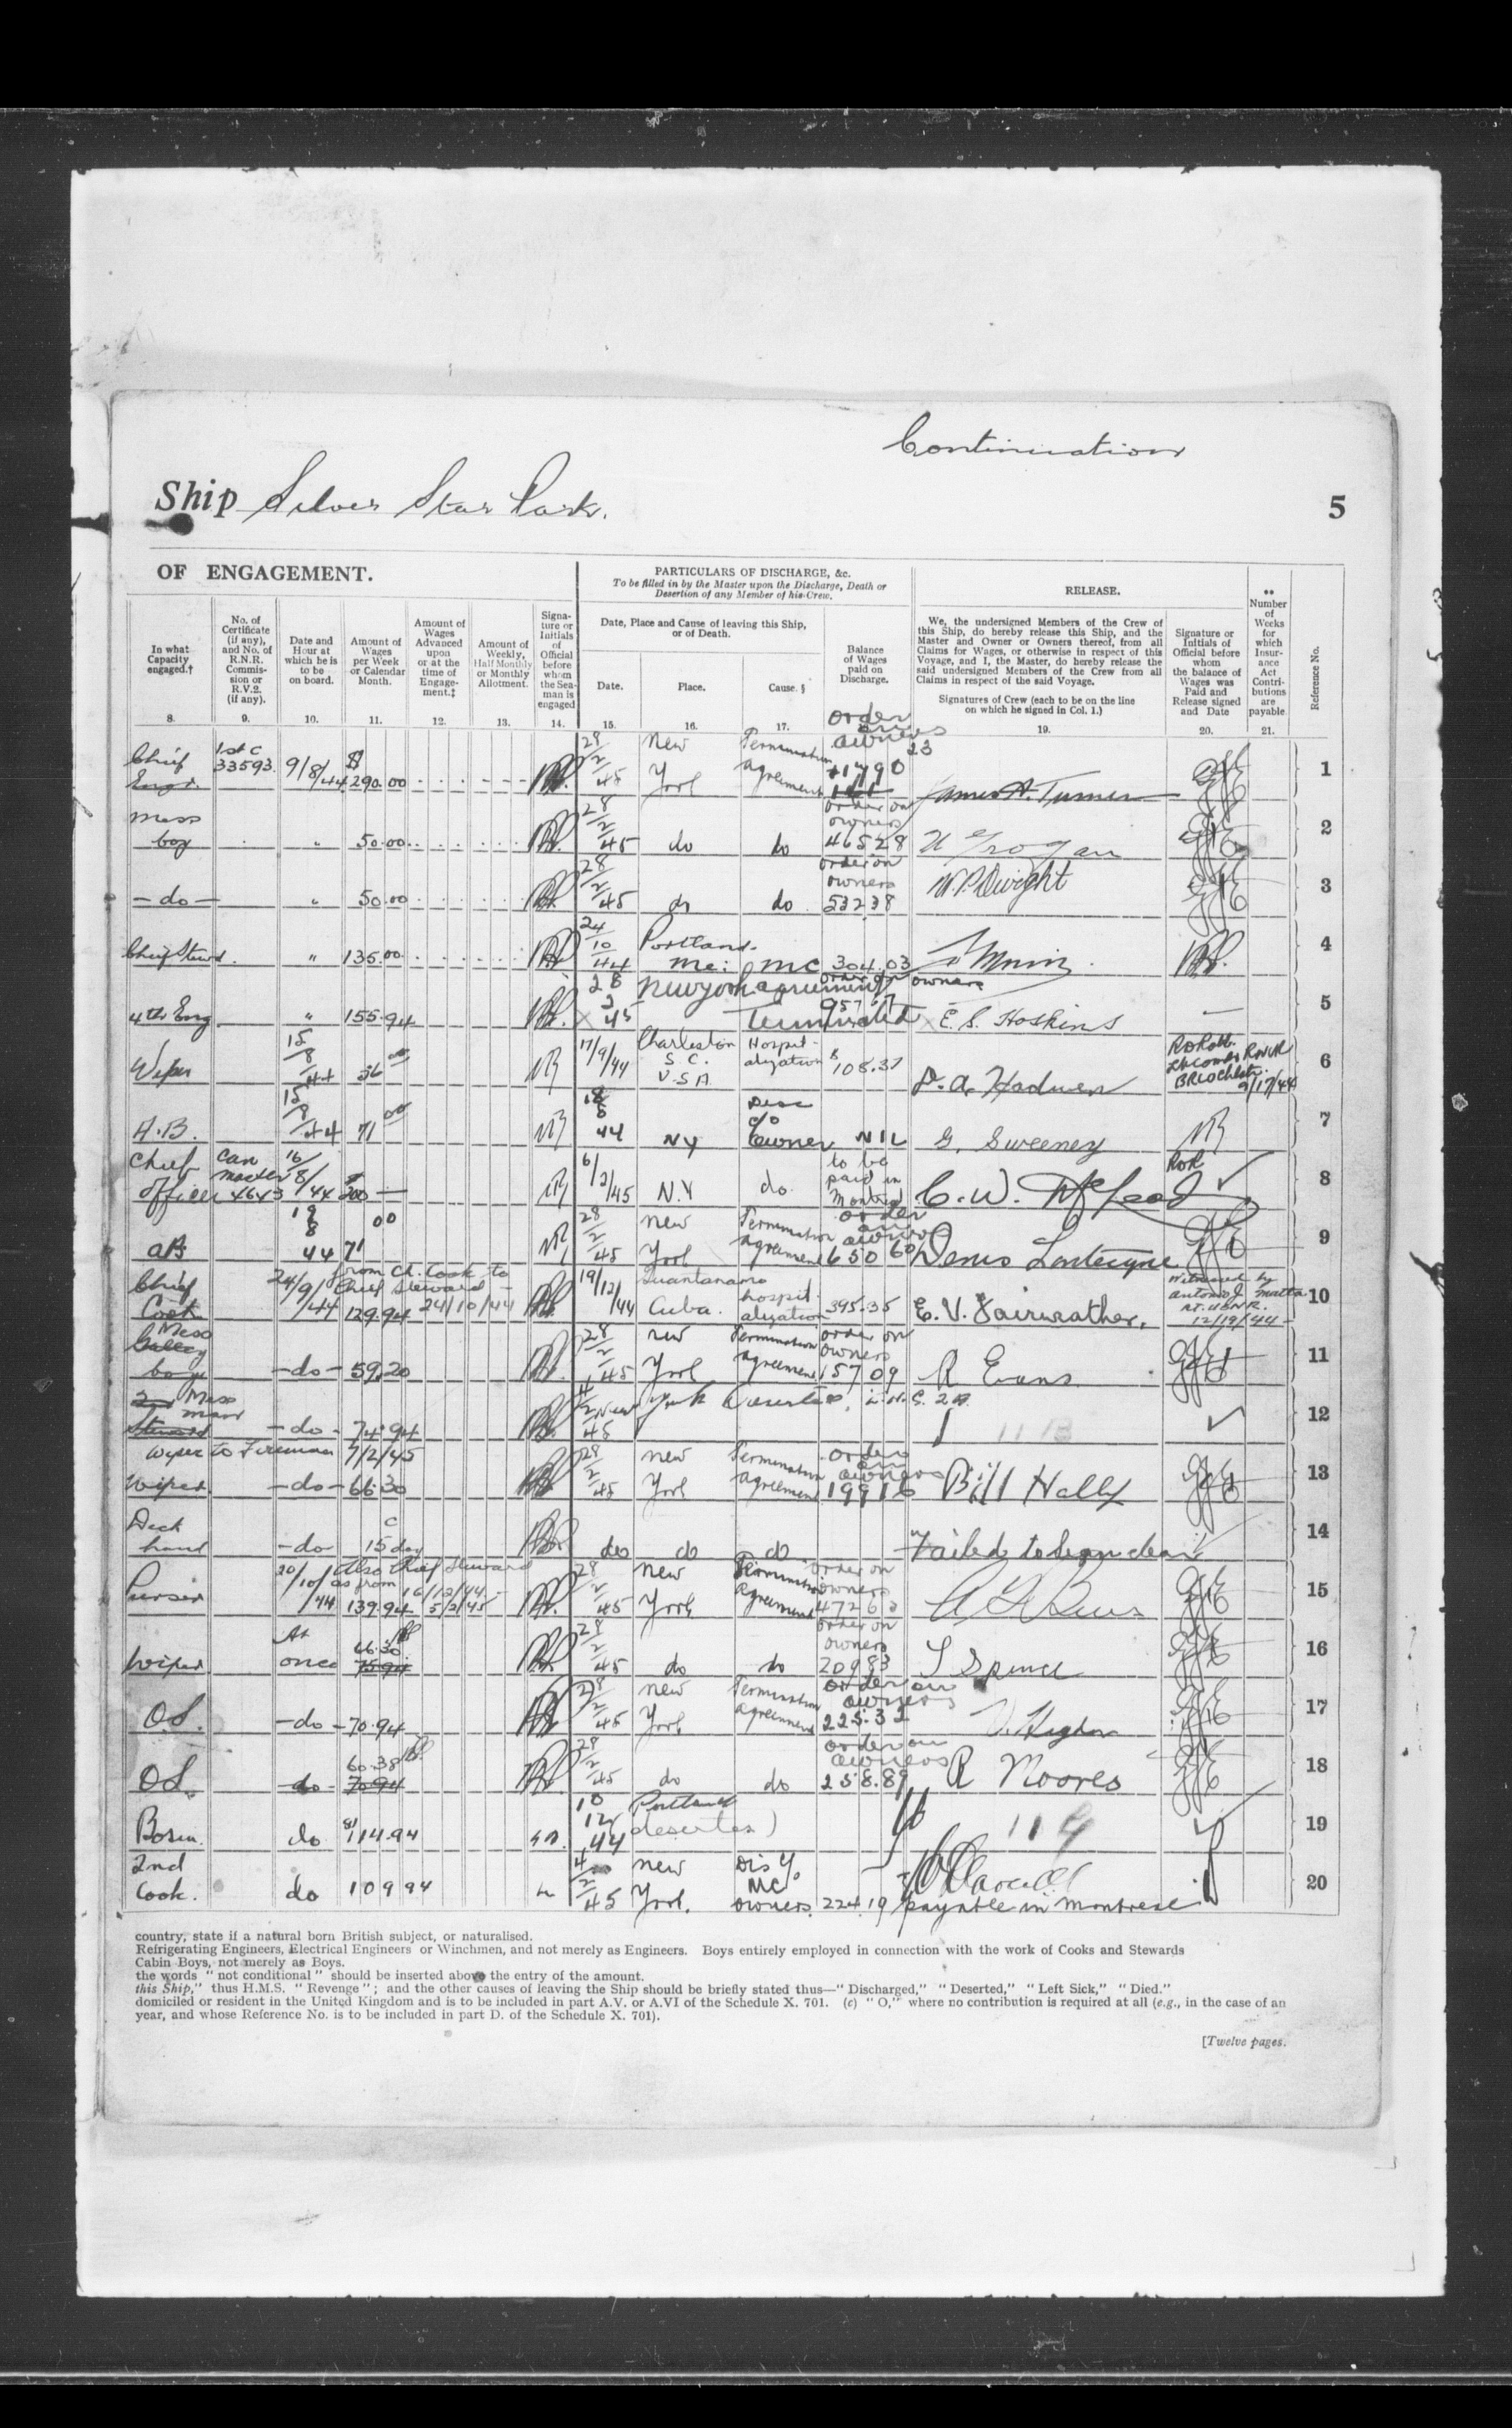 Continuation
Ship Silver Star Park.
5
OF ENGAGEMENT.
PARTICULARS OF DISCHARGE, &c.
To be filled in by the Master upon the Discharge, Death or
Desertion of any Member of his Crew.
RELEASE.
In what
Capacity
engaged.†
8.
No. of
Certificate
(if any),
and No. of
R.N.R.
Commis-
sion or
R.V.2.
(if any).
9.
Date and
Hour at
which he is
to be
on board.
10.
Amount of
Wages
per Week
or Calendar
Month.
11.
Amount of
Wages
Advanced
upon
or at the
time of
Engage-
ment.‡
12.
Amount of
Weekly,
Half Monthly
or Monthly
Allotment.
13.
Signa-
ture or
Initials
of
Official
before
whom
the Sea-
man is
engaged
14.
Date, Place and Cause of leaving this Ship,
or of Death.
Date.
15.
Place.
16.
Cause. §
17.
Balance
of Wages
paid on
Discharge.
We, the undersigned Members of the Crew of
this Ship, do hereby release this Ship, and the
Master and Owner or Owners thereof, from all
Claims for Wages, or otherwise in respect of this
Voyage, and I, the Master, do hereby release the
said undersigned Members of the Crew from all
Claims in respect of the said Voyage.
Signatures of Crew (each to be on the line
on which he signed in Col. 1.)
19.
Signature or
Initials of
Official before
whom
the balance of
Wages was
Paid and
Release signed
and Date
20.
**
Number
of
Weeks
for
which
Insur-
ance
Act
Contri-
butions
are
payable.
21.
Reference No.
Chief Engr. 1st C 33593 9/8/44 $ 290.00 28/2/45 New York Termination agreement order on owners James A. Turner 1
Mess boy " 50.00 28/2/45 do do order on owners 465 28 Grogan 2
- do - " 50.00 28/2/45 do do order on owners 532 38 W.P. Dwight 3
Chief Stwd. " 135.00 24/10/44 Portland Me: MC 304.03 4
4th Eng " 155.94 28/2/45 New York agreement Terminated order on owners 957 17 E. S. Hoskins 5
Wiper 15/8/44 56 00 17/9/44 Charleston S.C. U.S.A. Hospitalization $ 108.37 D. A. Hadwen 9/17/44 6
A.B. 15/8/44 71 00 18/8/44 NY Desc c/o owner NIL G. Sweeney 7
Chief officer Can master 4643 16/8/44 200 — 6/2/45 N.Y do. to be paid in Montreal C. W. McLeod RoR 8
AB 19/8/44 71 00 28/2/45 New York Termination agreement order on owners 650 60 Denis Lanteigne 9
from Ch. Cook to Chief Steward 24/10/44
Chief Cook 24/9/44 129.94 19/12/44 Guantanamo Cuba. hospitalization 395.35 E. V. Fairweather. Witnessed by Antonio J. Matta 12/19/44 10
Mess Galley boy - do - 59.20 28/2/45 New York Termination agreement order on owners 157 09 R Evans 11
2nd Mess man Steward - do - 74.94 4/2/45 New York Deserted 12
Wiper to Fireman 7/2/45
Wiper - do - 66.30 28/2/45 New York Termination agreement order on owners 199 16 Bill Hallx 13
Deck hand - do - 15 day do do do Failed to sign clear 14
Also Chief Steward as from 16/12/44 - 5/2/45
Purser 20/10/44 139.94 28/2/45 New York Termination agreement order on owners 472 63 15
Wiper At once 66.30 75.94 28/2/45 do do order on owners 209 83 Spence 16
O.S. - do - 70.94 28/2/45 New York Termination agreement order on owners 225.32 17
OS. - do - 60.38 70.94 28/2/45 do do order on owners 258.89 R Moores 18
Bosun. do 114.94 10/12/44 Portland deserted 119 19
2nd Cook. do 109 94 4/2/45 New York. Dis'y MC owners. 224.19 payable in Montreal 20
country, state if a natural born British subject, or naturalised.
Refrigerating Engineers, Electrical Engineers or Winchmen, and not merely as Engineers. Boys entirely employed in connection with the work of Cooks and Stewards
Cabin Boys, not merely as Boys.
the words " not conditional " should be inserted above the entry of the amount.
this Ship," thus H.M.S. " Revenge " ; and the other causes of leaving the Ship should be briefly stated thus—" Discharged," " Deserted," " Left Sick," " Died."
domiciled or resident in the United Kingdom and is to be included in part A.V. or A.VI of the Schedule X. 701. (c) " O," where no contribution is required at all (e.g., in the case of an
year, and whose Reference No. is to be included in part D. of the Schedule X. 701).
[Twelve pages.